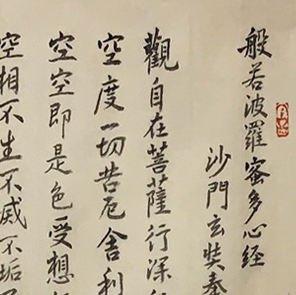 般若波羅蜜多心經
沙門玄奘奉
觀自在菩薩行深
空度一切苦厄舍利
空空即是色受想
空相不生不滅不垢